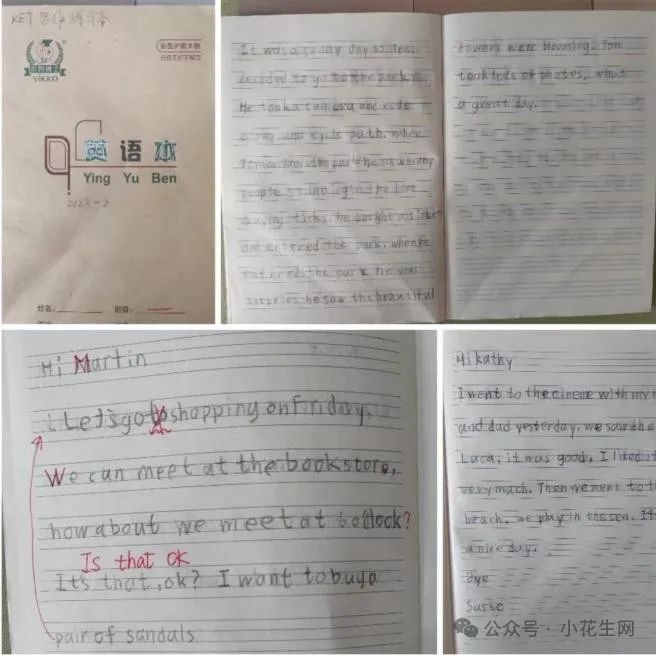 KET写作练习本
VIKKO
英语本
Ying Yu Ben
2023-2
姓名:
班级:
It was a sunny day so Tom
decided to go to the park.
He took a camera and rode
along and cycle path. When
people standing in the line
buying ticks. he bought a ticket
and entered the park, when he
entered the park he was
surpries he saw the beautiful
Fowers were blooming. Tom
took lots of photos, what
a great day.
Hi Martin
Let's go to shopping on Friday.
We can meet at the bookstore,
how about we meet at o'clock?
Is that OK
It's that, ok? I want to buy a
pair of sandals
Hi kathy
I went to the cineme with my
and dad yesterday. we saw the
Luca, it was good, I liked it
very much. Then we went to th
beach, we play in the sea. It
a nice day.
Bye
Susie
公众号 · 小花生网